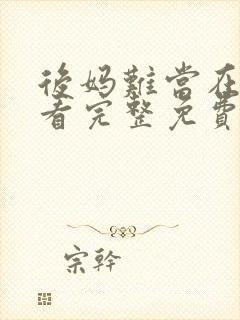 後妈難當在
看完整免費
宗幹